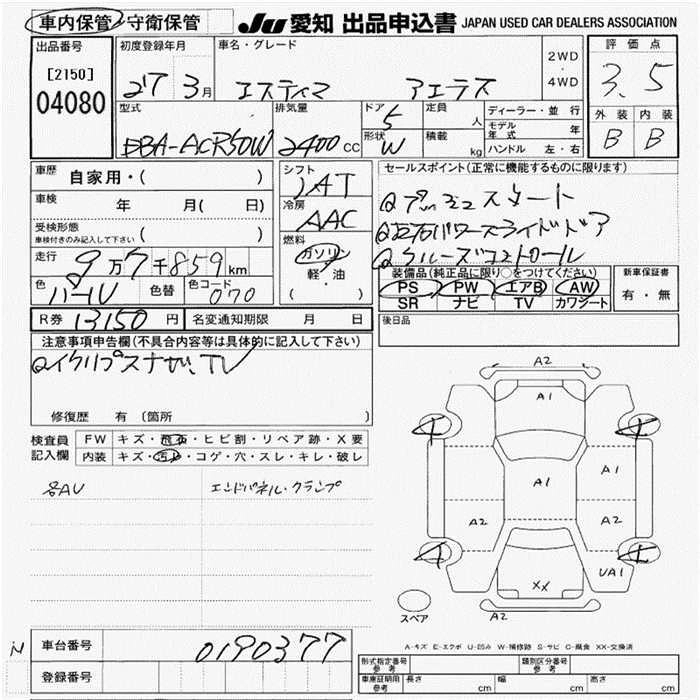 車内保管・守衛保管 JU 愛知 出品申込書 JAPAN USED CAR DEALERS ASSOCIATION
出品番号 初度登録年月 車名・グレード 評価点
[2150] 27 3月 エスティマ アエラス 2WD ・ 4WD 3.5
04080
型式 排気量 ドア 5 定員 人 ディーラー・並行 外装 内装
DBA-ACR50W 2400cc 形状 W 積載 kg モデル年式 年 B B
ハンドル 左・右
車歴 自家用・( ) シフト IAT セールスポイント(正常に機能するものに限ります)
車検 年 月( 日) 冷房 AAC プッシュスタート
受検形態 車検付きのみ記入して下さい ( ) 左右パワースライドドア
走行 9万7千859km 燃料 ガソリン クルーズコントロール
軽・油
( )
色 パール 色替 色コード 070
装備品(純正品に限り○をつけてください) 新車保証書
PS PW エアB AW 有・無
SR ナビ TV カワシート
R券 13150円 名変通知期限 月 日 後日品
注意事項申告欄(不具合内容等は具体的に記入して下さい)
イクリプスナビ、TV
修復歴 有 (箇所 )
検査員 記入欄 FW キズ・飛石・ヒビ割・リペア跡・X要
内装 キズ・汚れ・コゲ・穴・スレ・キレ・破レ
各AU エンドパネル・クランプ
A2
A1
A1
A1
A2 A2
XX UA1
A2
スペア
A-キズ E-エクボ U-凹み W-補修跡 S-サビ C-腐食 XX-交換済
車台番号 0190377
登録番号
型式指定番号 参考 類別区分番号 参考
車庫証明用 参考 長さ cm 幅 cm 高さ cm